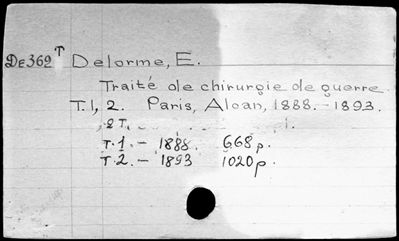 De362 T Delorme, E.
Traité de chirurgie de guerre.
T.1, 2. Paris, Alcan, 1888.-1893.
2 T.
T.1.- 1888. 668 p.
T.2.- 1893 1020 p.